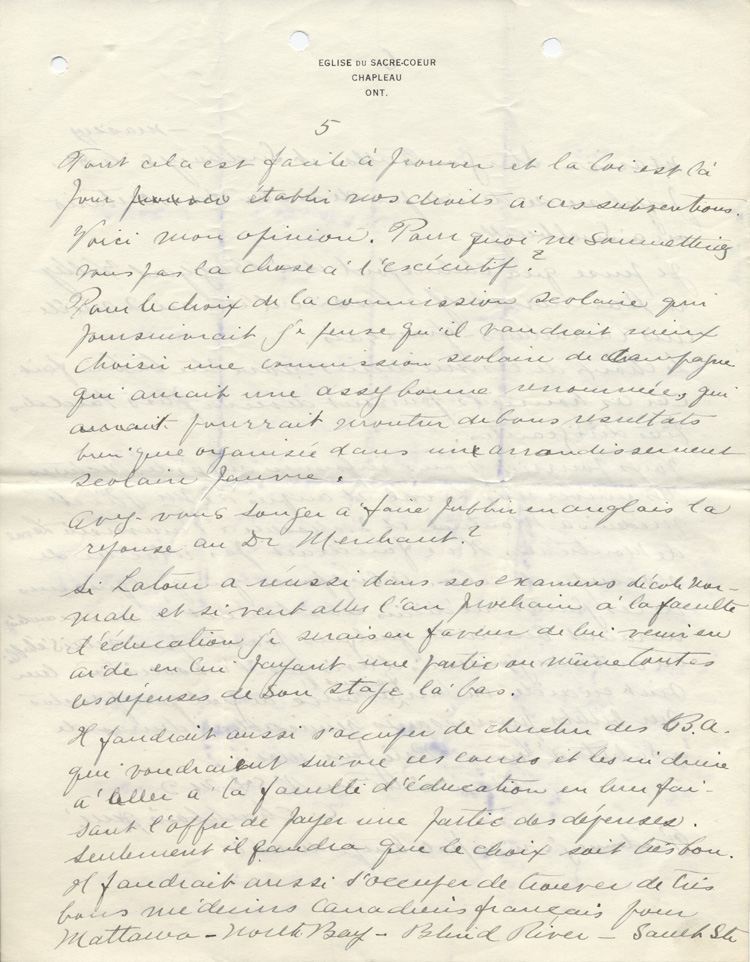 EGLISE DU SACRE-COEUR
CHAPLEAU
ONT.
5
Tout cela est facile à prouver et la loi est là
pour établir nos droits a' ces subventions.
Voici mon opinion. Pourquoi ne soumettriez
vous pas la chose à l'exécutif?
Pour le choix de la commission scolaire qui
poursuivrait je pense qu'il vaudrait mieux
choisir une commission scolaire de campagne
qui aurait une assez bonne renommée, qui
pourrait montrer de bons résultats
bien que organisée dans un arrondissement
scolaire pauvre.
Avez-vous songer à faire publier en anglais la
réponse au Dr Merchant?
Si Latour a réussi dans ses examens d'école Nor-
male et si veut aller l'an prochain à la faculté
d'éducation je serais en faveur de lui venir en
aide en lui payant une partie ou même toutes
les dépenses de son stage là bas.
Il faudrait aussi s'occuper de chercher des B.A.
qui voudraient suivre ces cours et les induire
a' aller à la faculté d'éducation en leur fai-
sant l'offre de payer une partie des dépenses.
Seulement il faudra que le choix soit très bon.
Il faudrait aussi s'occuper de trouver de très
bons médecins Canadiens français pour
Mattawa – North Bay – Blind River – Sault Ste